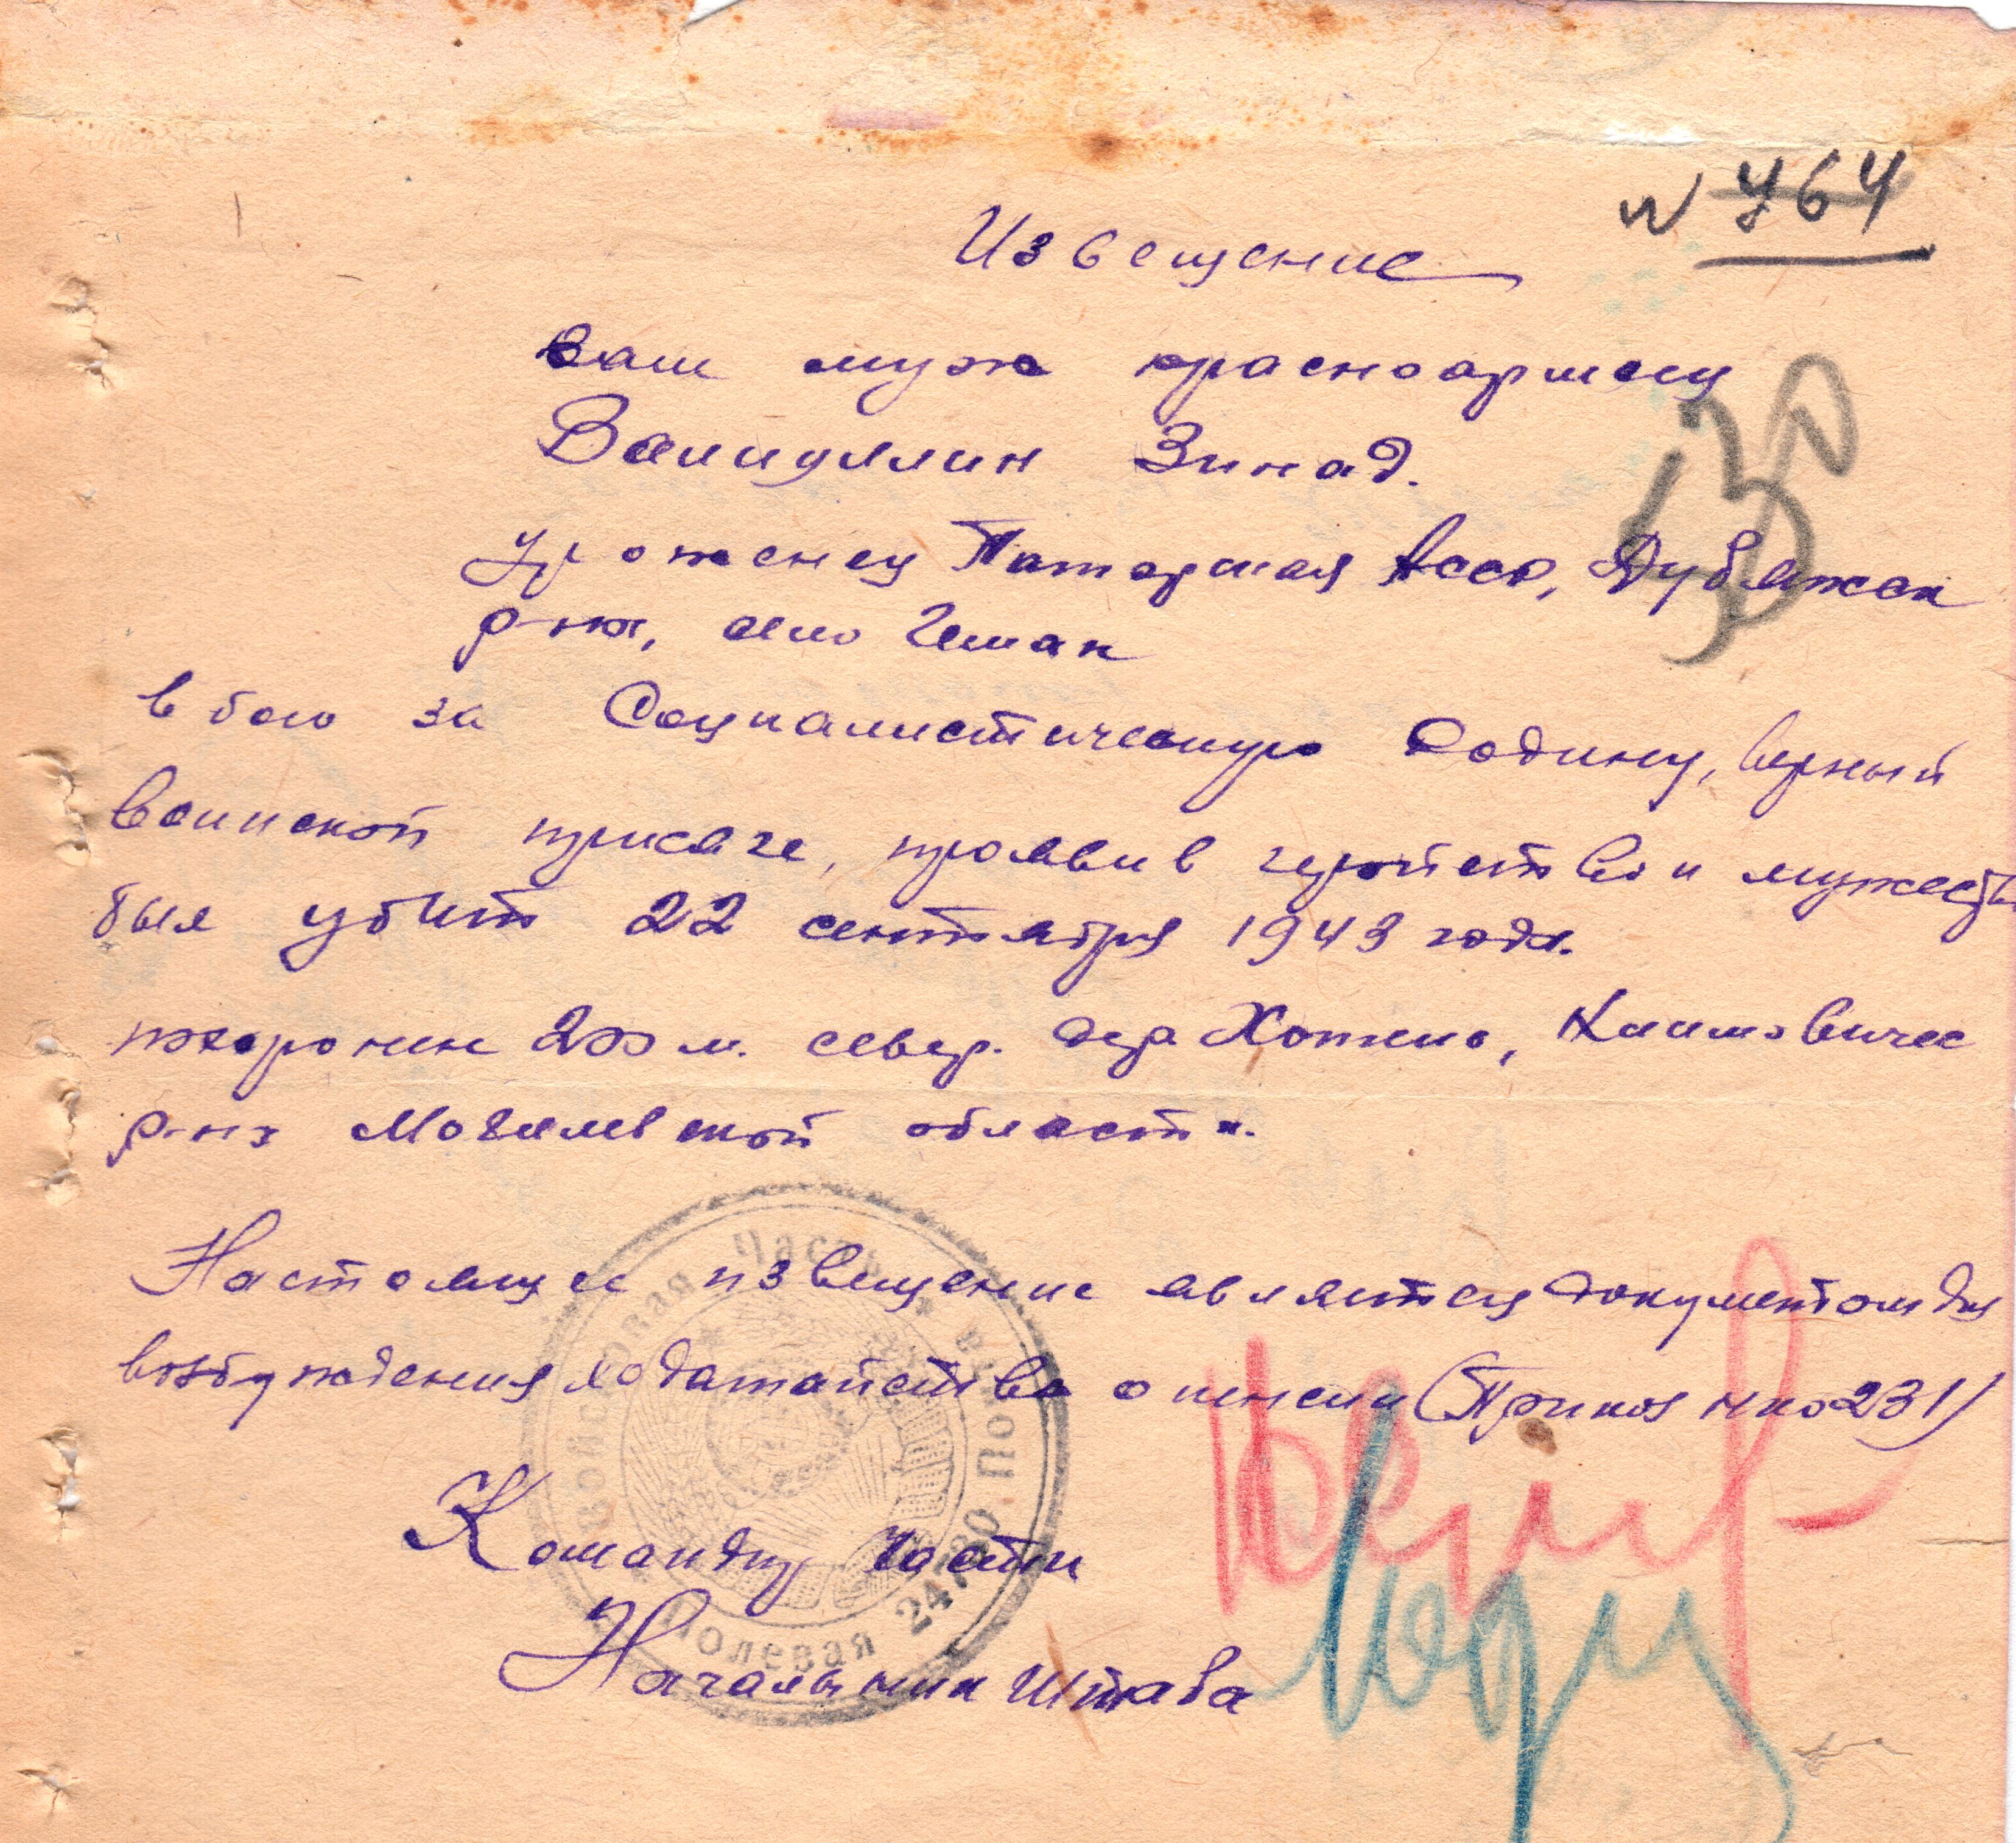 N 764
Извещение
130
ваш муж красноармеец
Валиуллин Зинад.
уроженец Татарская АССР, Дубляжск
р-на, село Чешак
в бою за Социалистическую Родину, верный
воинской присяге, проявив геройство и мужество
был убит 22 сентября 1943 года.
похоронен 200 м. север. дер Хотено, Климовичес
р-на Могилевской области.
Настоящее извещение является документом для
возбуждения ходатайства о пенсии (Приказ нко 231)
Командир части
Начальник Штаба
Войсковая Часть * Полевая Почта
24780